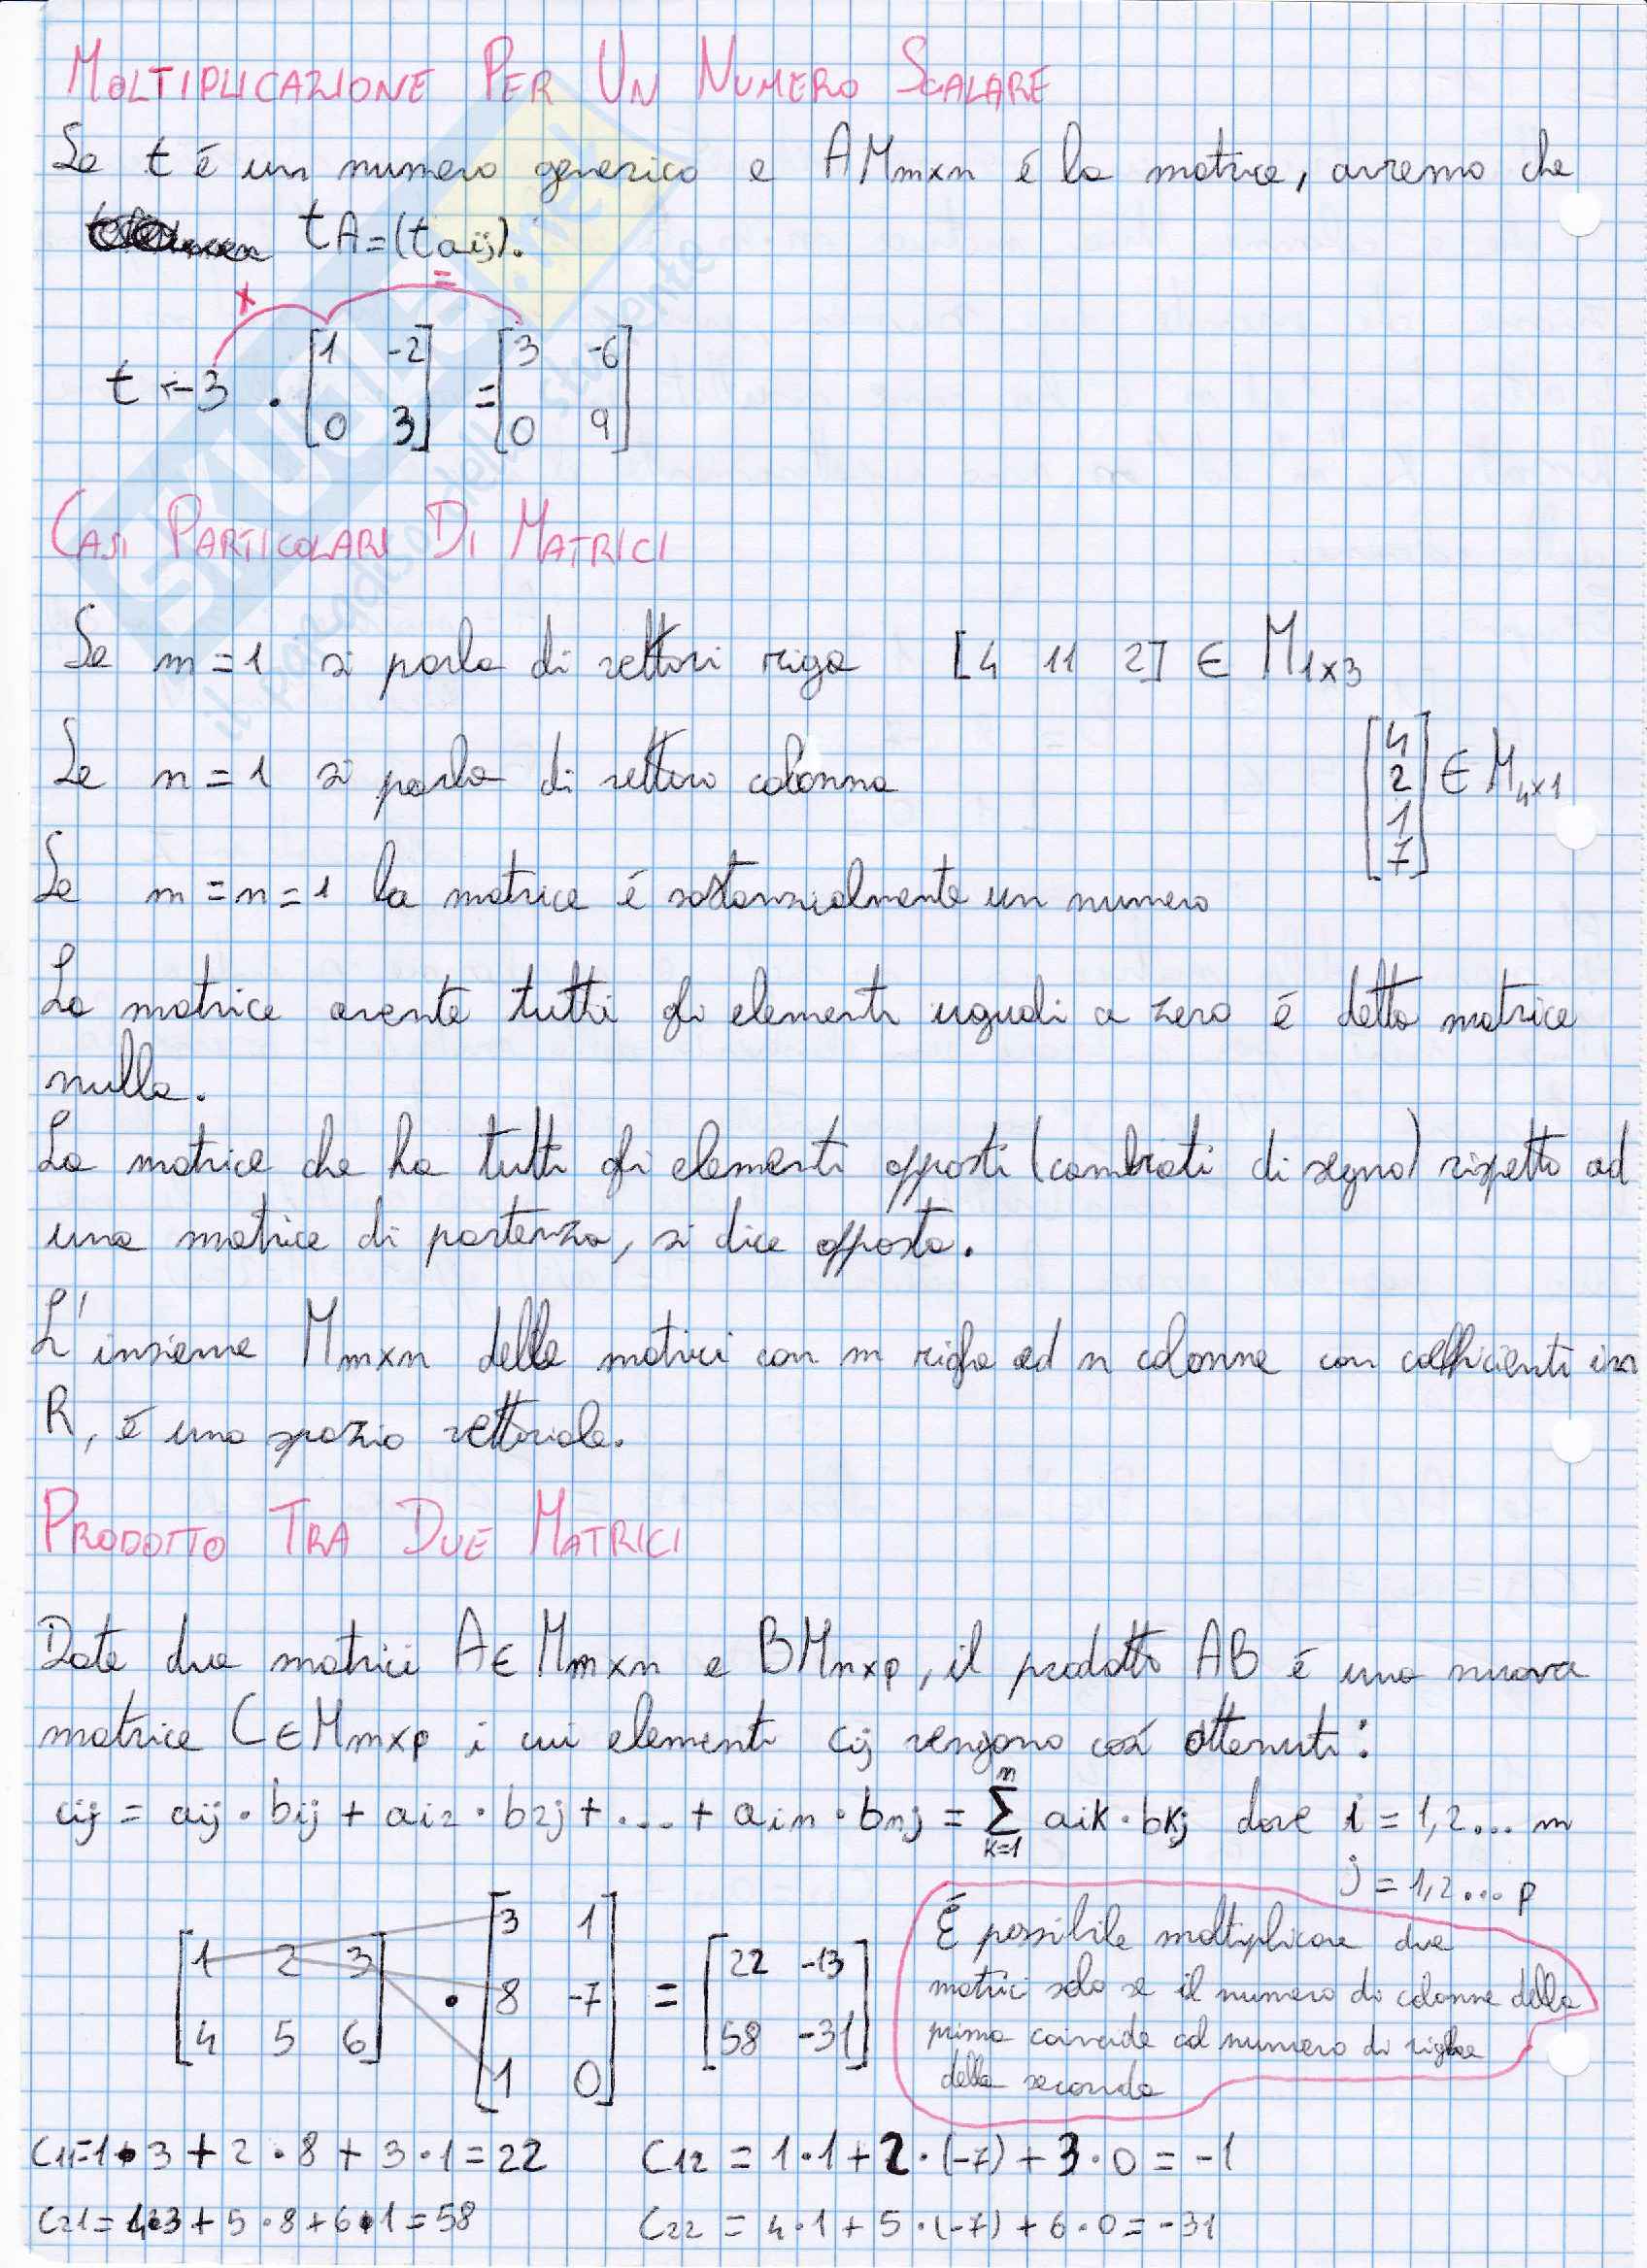 MOLTIPLICAZIONE PER UN NUMERO SCALARE
Se t é un numero generico e AMmxn é la matrice, avremo che
tA=(taij).
x =
t ← 3 · [1 -2] = [3 -6]
[0 3] [0 9]
CASI PARTICOLARI DI MATRICI
Se m=1 si parla di vettori riga [4 11 2] ∈ M1x3
Se n=1 si parla di vettore colonna [4 2 1 7] ∈ M4x1
Se m=n=1 la matrice é sostanzialmente un numero
La matrice avente tutti gli elementi uguali a zero é detta matrice
nulla.
La matrice che ha tutti gli elementi opposti (cambiati di segno) rispetto ad
una matrice di partenza, si dice opposta.
L'insieme Mmxn delle matrici con m righe ed n colonne con coefficienti in
R, é uno spazio vettoriale.
PRODOTTO TRA DUE MATRICI
Date due matrici A∈Mmxn e BMnxp, il prodotto AB é una nuova
matrice C∈Mmxp i cui elementi cij vengono cosí ottenuti:
cij = aij·bij + ai2·b2j+....+ain·bnj = ∑ aik·bkj dove i=1,2...m
n
k=1
j=1,2...p
[1 2 3] · [3 1] = [22 -13]
[4 5 6] [8 -7] [58 -31]
[1 0]
É possibile moltiplicare due
matrici solo se il numero di colonne della
prima coincide col numero di righe
della seconda
C11=1·3+2·8+3·1=22 C12=1·1+2·(-7)+3·0=-1
C21=4·3+5·8+6·1=58 C22=4·1+5·(-7)+6·0=-31
SKUOLA.net
il paradiso dello studente